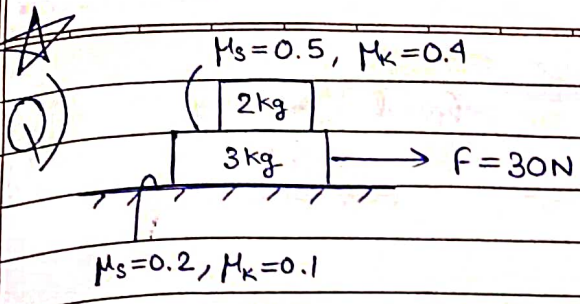 μs=0.5, μk=0.4
Q)
2kg
3kg
F=30N
μs=0.2, μk=0.1